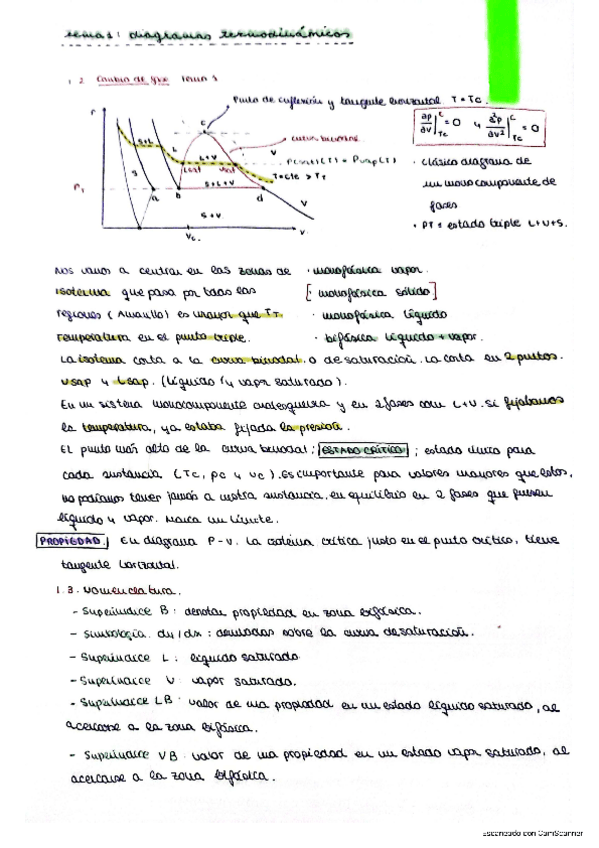 tema 1: diagramas termodinámicos
1.2. Cambio de fase tema 1
Punto de inflexión y tangente horizontal T = Tc.
∂p/∂v|c Tc = 0 y ∂²p/∂v²|c Tc = 0
P
c
curva binodal
S+L
L
L+V
V
T=cte > TT
S
P1
a
b
S+L+V
d
V
S+V
Vc
v
· Clásico diagrama de
un monocomponente de
fases
· PT ≡ estado triple L+V+S.
Nos vamos a centrar en las zonas de · monofásica vapor.
isoterma que pasa por todas las [· monofásica sólido]
regiones (Amarillo) es mayor que TT · monofásica líquido
temperatura en el punto triple. · bifásica líquido + vapor.
La isoterma corta a la curva binodal o de saturación. La corta en 2 puntos.
Vsap y Lsap. (líquido y vapor saturado).
En un sistema monocomponente cualesquiera y en 2 fases com L+V. Si fijábamos
la temperatura, ya estaba fijada la presión.
El punto más alto de la curva binodal: ESTADO CRÍTICO; estado único para
cada sustancia (Tc, pc y vc). Es importante para valores mayores que estos,
no podíamos tener jamás a nuestra sustancia en equilibrio en 2 fases que fuesen
líquido y vapor. Marca un límite.
PROPIEDAD. En diagrama P-V. La isoterma crítica justo en el punto crítico, tiene
tangente horizontal.
1.3. Nomenclatura.
- Superíndice B: denotar propiedad en zona bifásica.
- Simbología du/dx: denotadas sobre la curva de saturación.
- Superíndice L: líquido saturado
- Superíndice V: vapor saturado.
- Superíndice LB: valor de una propiedad en un estado líquido saturado, al
acercarse a la zona bifásica.
- Superíndice VB: valor de una propiedad en un estado vapor saturado, al
acercarse a la zona bifásica.
Escaneado con CamScanner